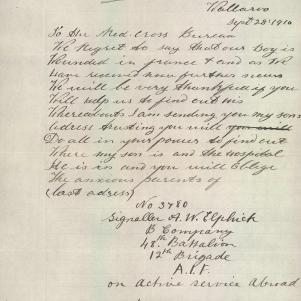 Wallaroo
Sept 28 1916
To the Red Cross Bureau
We Regret to say that our Boy is
Wounded in france & and as We
Have received now further news
We will be very thankful if you
Will help us to find out his
Whereabouts I am sending you my sons
adress trusting you will you will
Do all in your power to find out
Where my son is and the Hospital
He is in and you will Oblige
The anxious parents of
(last adress)
No 3780
Signaller A. W. Elphick
B Company
48th Battalion
12th Brigade
A.I.F.
on active service Abroad